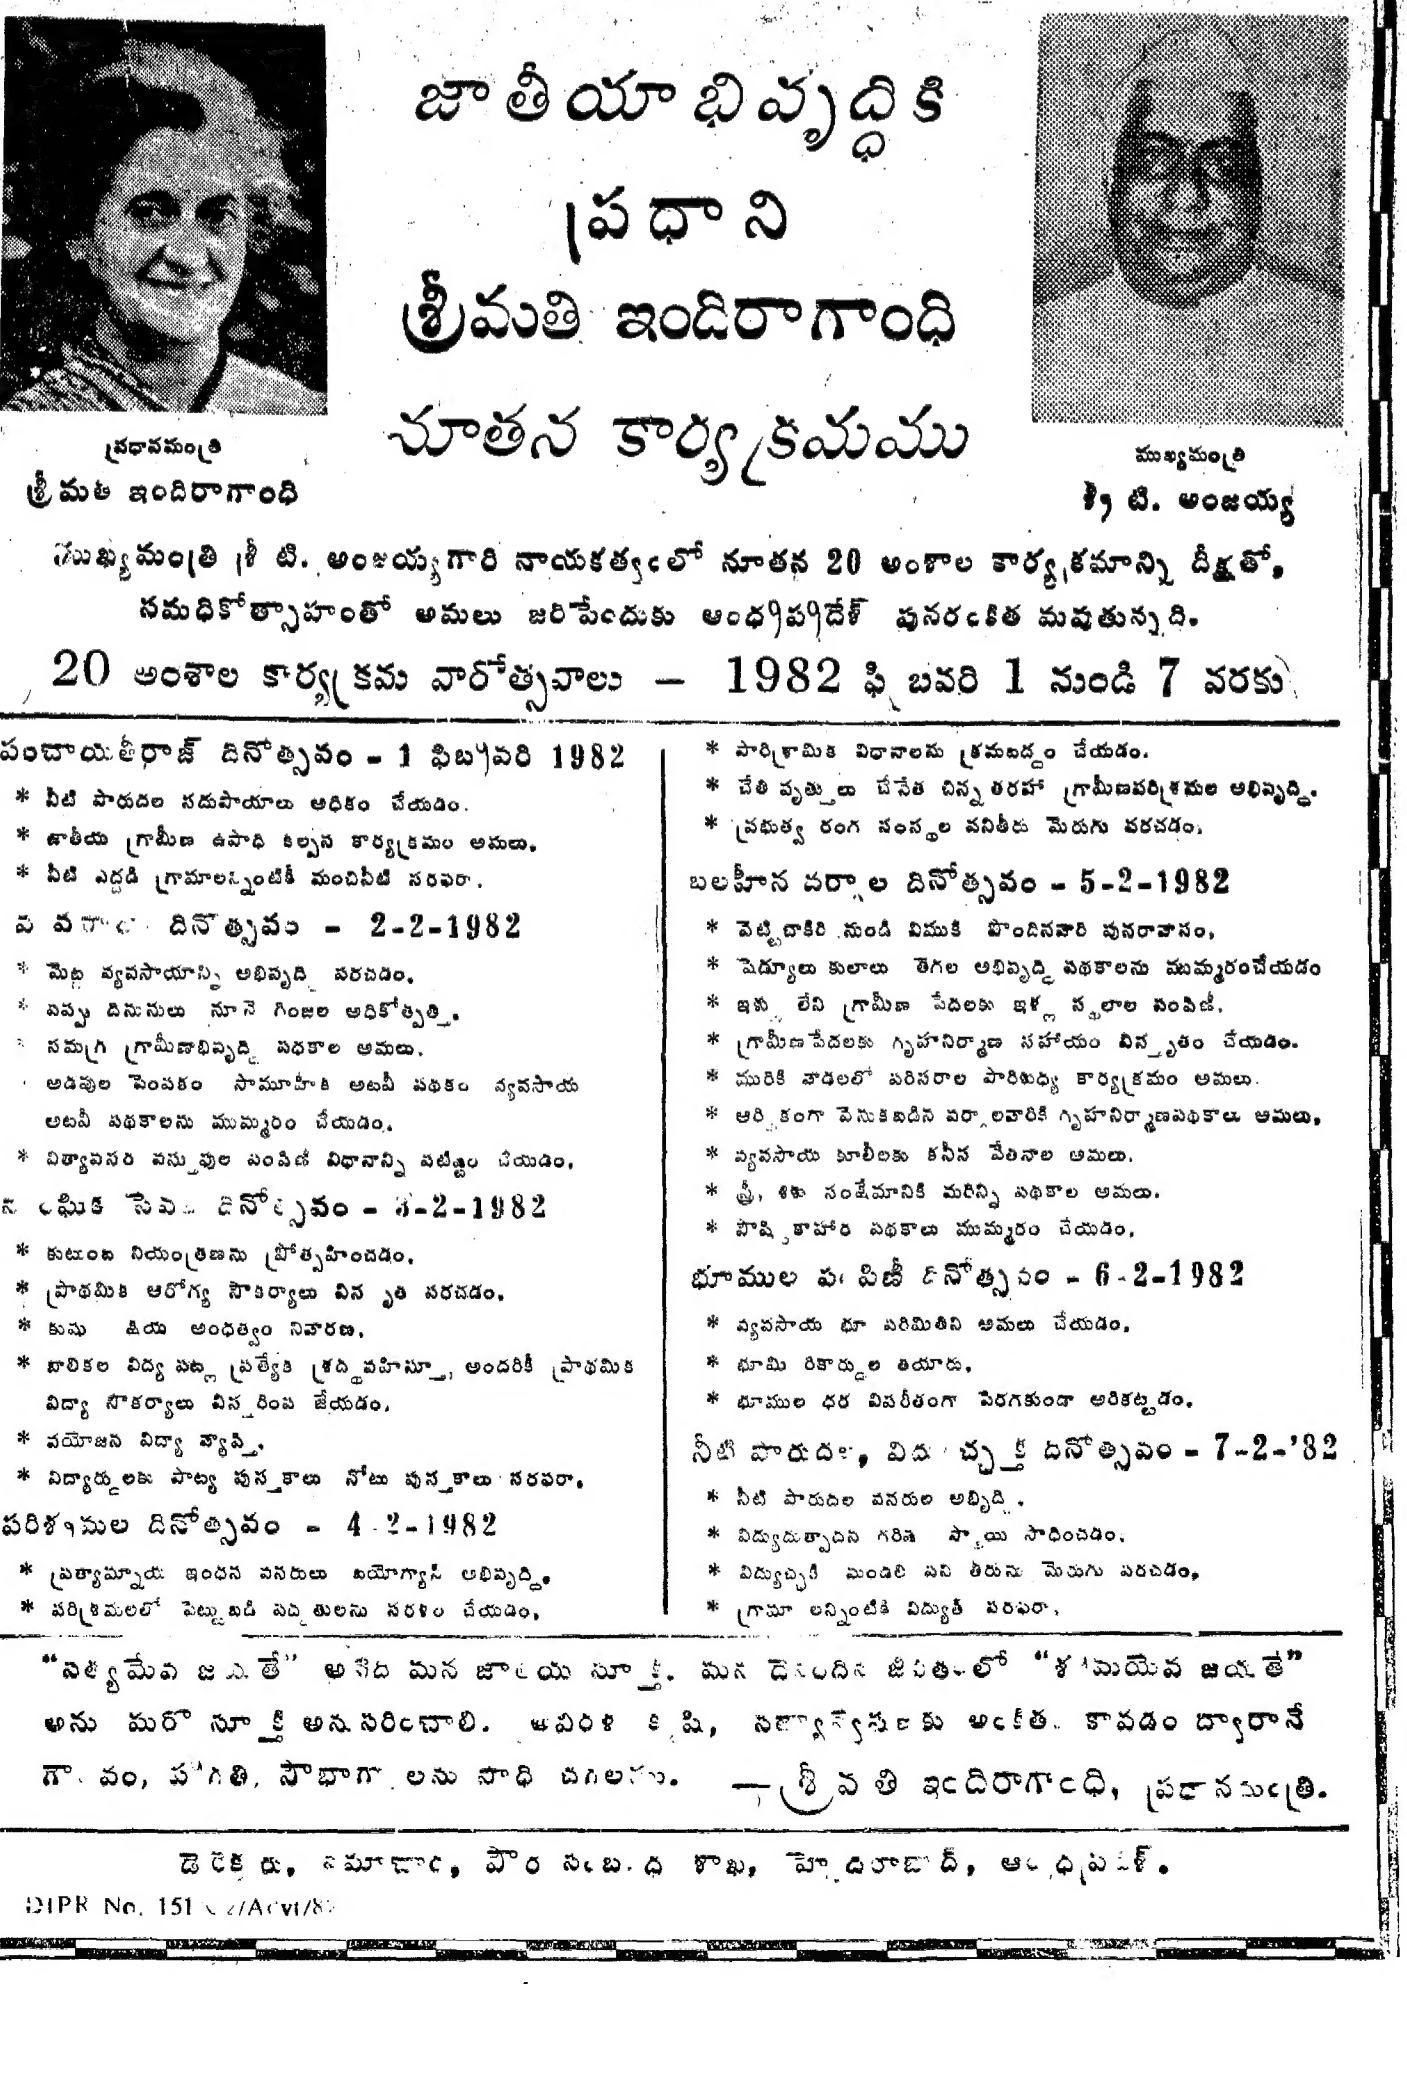 జాతీయాభివృద్ధికి
ప్రధాని
శ్రీమతి ఇందిరాగాంధి
నూతన కార్యక్రమము
ప్రధానమంత్రి
శ్రీమతి ఇందిరాగాంధి
ముఖ్యమంత్రి
శ్రీ టి. అంజయ్య
ముఖ్యమంత్రి శ్రీ టి. అంజయ్యగారి నాయకత్వంలో నూతన 20 అంశాల కార్యక్రమాన్ని దీక్షతో,
సమధికోత్సాహంతో అమలు జరిపేందుకు ఆంధ్రప్రదేశ్ పునరంకిత మవుతున్నది.
20 అంశాల కార్యక్రమ వారోత్సవాలు – 1982 ఫిబ్రవరి 1 నుండి 7 వరకు
పంచాయతీరాజ్ దినోత్సవం - 1 ఫిబ్రవరి 1982
* నీటి పారుదల సదుపాయాలు అధికం చేయడం.
* జాతీయ గ్రామీణ ఉపాధి కల్పన కార్యక్రమం అమలు.
* నీటి ఎద్దడి గ్రామాలన్నింటికీ మంచినీటి సరఫరా.
దినోత్సవం - 2-2-1982
* మెట్ట వ్యవసాయాన్ని అభివృద్ధి పరచడం.
* పప్పు దినుసులు నూనె గింజల అధికోత్పత్తి.
* సమగ్ర గ్రామీణాభివృద్ధి పథకాల అమలు.
అడవుల పెంపకం సామూహిక అటవీ పథకం వ్యవసాయ
అటవీ పథకాలను ముమ్మరం చేయడం.
* నిత్యావసర వస్తువుల పంపిణీ విధానాన్ని పటిష్టం చేయడం.
దినోత్సవం - 3-2-1982
* కుటుంబ నియంత్రణను ప్రోత్సహించడం.
* ప్రాథమిక ఆరోగ్య సౌకర్యాలు విస్తృతి పరచడం.
* కుష్ఠు క్షయ అంధత్వం నివారణ.
* బాలికల విద్య పట్ల ప్రత్యేక శ్రద్ధవహిస్తూ, అందరికీ ప్రాథమిక
విద్యా సౌకర్యాలు విస్తరింప జేయడం.
* వయోజన విద్యా వ్యాప్తి.
* విద్యార్థులకు పాఠ్య పుస్తకాలు నోటు పుస్తకాలు సరఫరా.
పరిశ్రమల దినోత్సవం - 4-2-1982
* ప్రత్యామ్నాయ ఇంధన వనరులు బయోగ్యాస్ అభివృద్ధి.
* పరిశ్రమలలో పెట్టుబడి పద్ధతులను సరళం చేయడం.
* పారిశ్రామిక విధానాలను క్రమబద్ధం చేయడం.
* చేతి వృత్తులు చేనేత చిన్న తరహా గ్రామీణపరిశ్రమల అభివృద్ధి.
* ప్రభుత్వ రంగ సంస్థల పనితీరు మెరుగు పరచడం.
బలహీన వర్గాల దినోత్సవం - 5-2-1982
* వెట్టిచాకిరి నుండి విముక్తి పొందినవారి పునరావాసం.
* షెడ్యూలు కులాలు తెగల అభివృద్ధి పథకాలను ముమ్మరంచేయడం
* ఇళ్ళు లేని గ్రామీణ పేదలకు ఇళ్ల స్థలాల పంపిణీ.
* గ్రామీణపేదలకు గృహనిర్మాణ సహాయం విస్తృతం చేయడం.
* మురికి వాడలలో పరిసరాల పారిశుధ్య కార్యక్రమం అమలు.
* ఆర్థికంగా వెనుకబడిన వర్గాలవారికి గృహనిర్మాణపథకాలు అమలు.
* వ్యవసాయ కూలీలకు కనీస వేతనాల అమలు.
* స్త్రీ, శిశు సంక్షేమానికి మరిన్ని పథకాల అమలు.
* పౌష్టికాహార పథకాలు ముమ్మరం చేయడం.
భూముల పంపిణీ దినోత్సవం - 6-2-1982
* వ్యవసాయ భూ పరిమితిని అమలు చేయడం.
* భూమి రికార్డుల తయారు.
* భూముల ధర విపరీతంగా పెరగకుండా అరికట్టడం.
నీటి పారుదల, విద్యుచ్ఛక్తి దినోత్సవం - 7-2-'82
* నీటి పారుదల వనరుల అభివృద్ధి.
* విద్యుదుత్పాదన గరిష్ఠ స్థాయి సాధించడం.
* విద్యుచ్ఛక్తి మండలి పని తీరును మెరుగు పరచడం.
* గ్రామాలన్నింటికి విద్యుత్ సరఫరా.
“సత్యమేవ జయతే” అనేది మన జాతీయ సూక్తి. మన దైనందిన జీవితంలో “శ్రమయేవ జయతే”
అను మరో సూక్తి అనుసరించాలి. అవిరళ కృషి, సత్యాన్వేషణకు అంకితం కావడం ద్వారానే
ప్రగతి, సౌభాగ్యాలను
—శ్రీమతి ఇందిరాగాంధి, ప్రధానమంత్రి.
డైరెక్టరు, సమాచార, పౌర సంబంధ శాఖ, హైదరాబాద్, ఆంధ్రప్రదేశ్.
DIPR No. 151